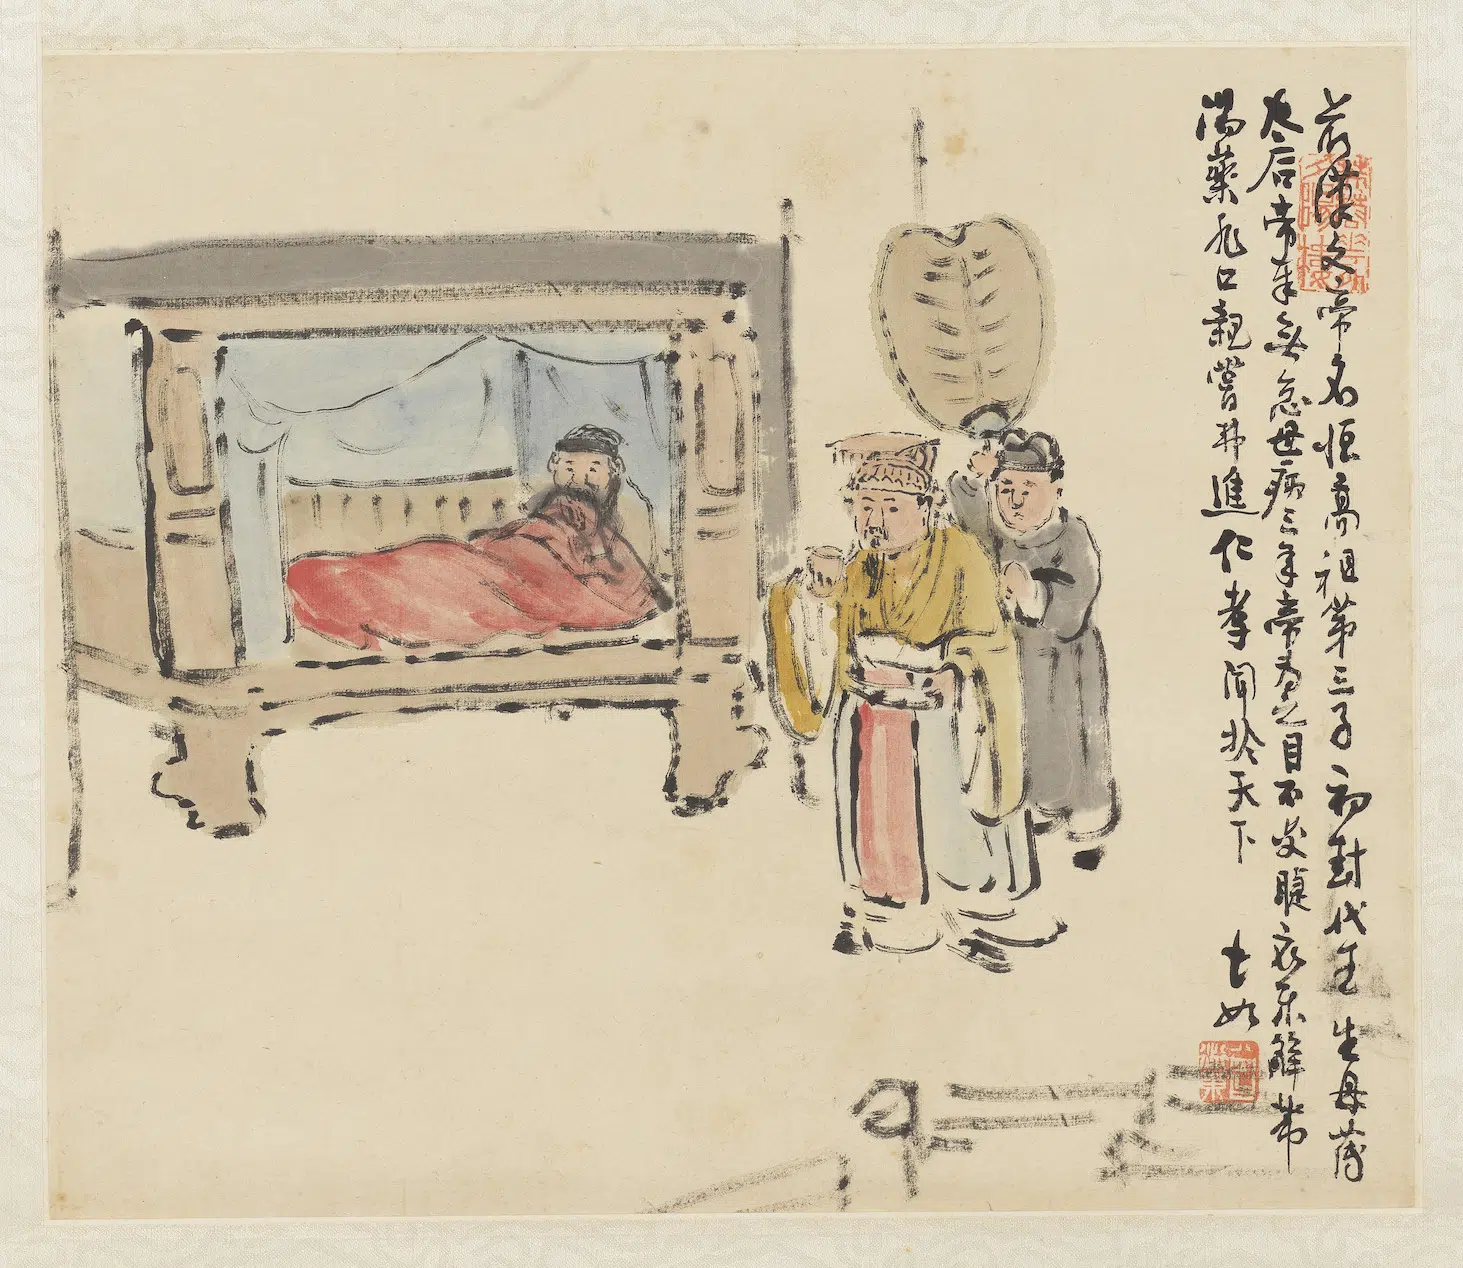 前漢文帝名恒高祖第三子初封代王生母薄
太后帝奉養無怠母病三年帝為之目不交睫衣不解帶
湯藥非口親嘗弗進仁孝聞於天下